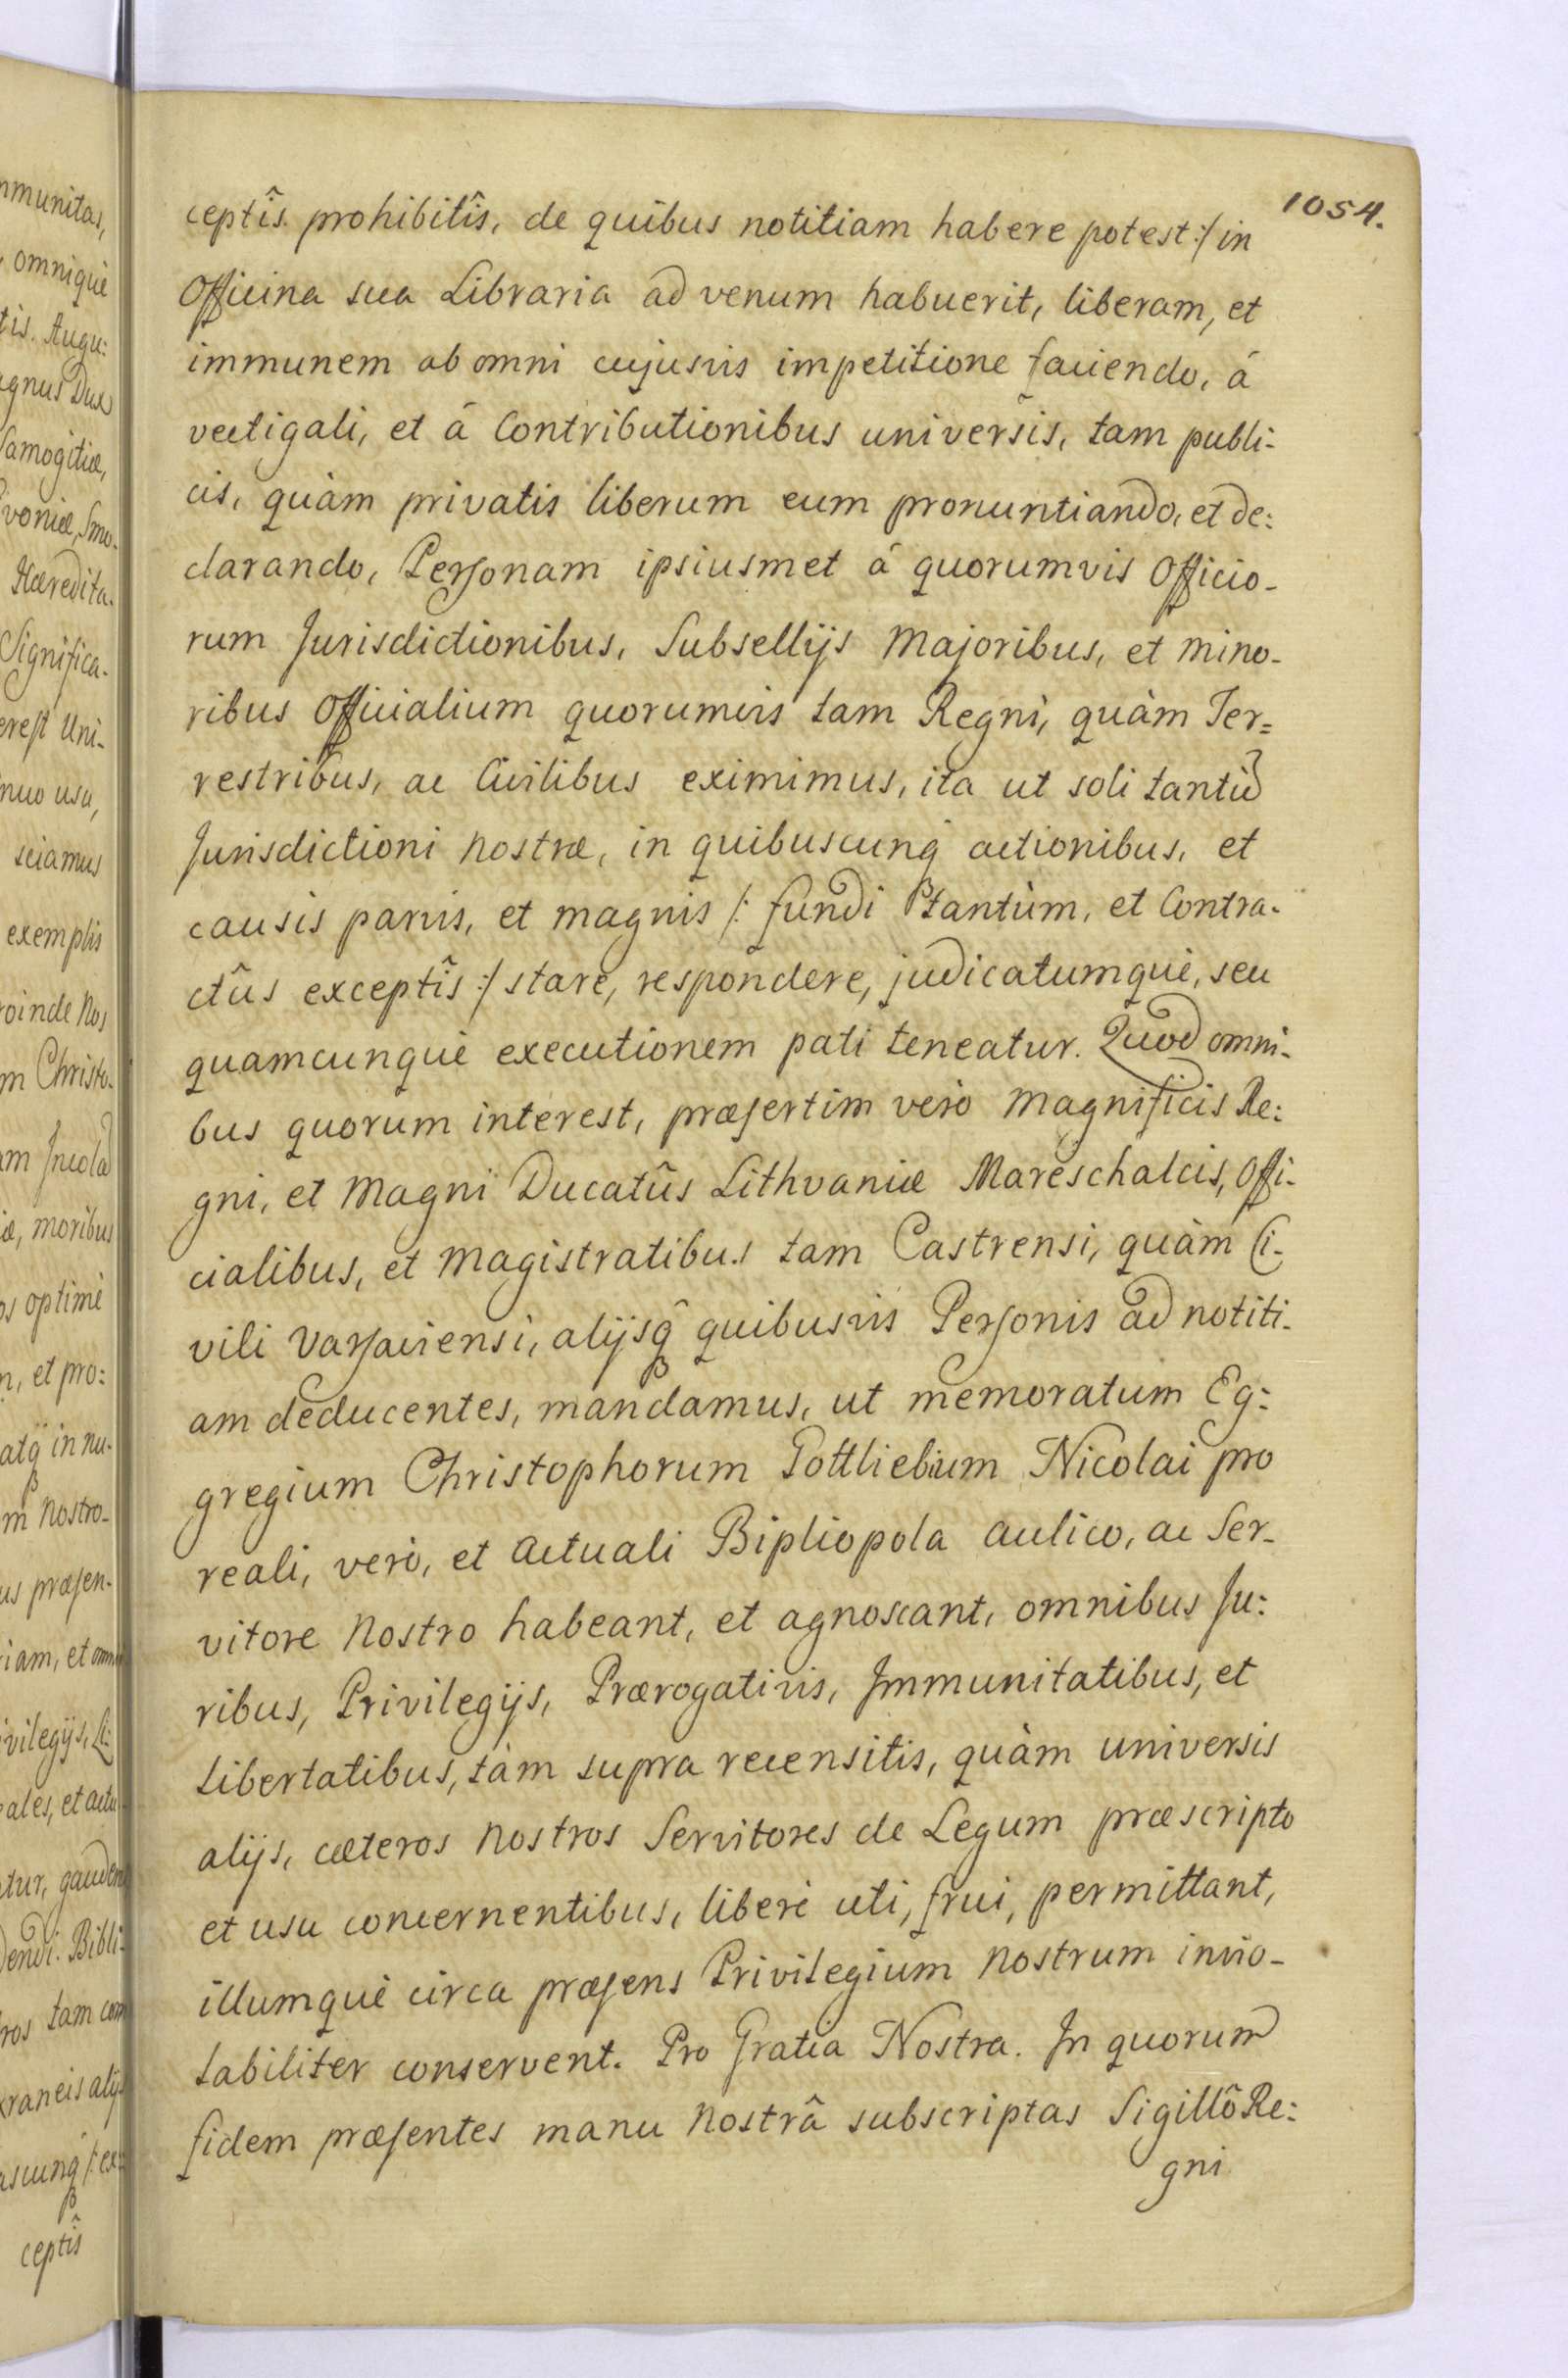 1054.
ceptîs prohibitîs, de quibus notitiam habere potest :/ in
Officina sua Libraria ad venum habuerit, liberam, et
immunem ab omni cujusvis impetitione faciendo, á
vectigali, et á Contributionibus universis, tam publi-
cis, quàm privatis liberum eum pronuntiando, et de:
clarando, Personam ipsiusmet á quorumvis Officio-
rum Jurisdictionibus, Subsellijs Majoribus, et mino-
ribus Officialium quorumvis tam Regni, quàm Ter=
restribus, ac Civilibus eximimus, ita ut soli tantũ
Jurisdictioni Nostræ, in quibuscunq́ actionibus, et
causis parvis, et magnis /: fundi tantùm, et Contra-
ctûs exceptîs :/ stare, respondere, judicatumquè, seu
quamcunquè executionem pati teneatur. Quod omni-
bus quorum interest, præsertim verò Magnificis Re:
gni, et Magni Ducatûs Lithvaniæ Mareschalcis, Offi-
cialibus, et Magistratibus tam Castrensi, quàm Ci-
vili Varsaviensi, alijsq̂ quibusvis Personis ad notiti-
am deducentes, mandamus, ut memoratum Eg:
gregium Christophorum Gottliebium Nicolai pro
reali, verò, et actuali Bipliopola aulico, ac Ser-
vitore Nostro habeant, et agnoscant, omnibus Ju:
ribus, Privilegijs, Prærogativis, Immunitatibus, et
Libertatibus, tàm supra recensitis, quàm universis
alijs, cæteros Nostros Servitores de Legum præscripto
et usu concernentibus, liberè uti, frui, permittant,
illumquè circa præsens Privilegium Nostrum invio-
labiliter conservent. Pro Gratia Nostra. In quorum
fidem præsentes manu Nostrâ subscriptas Sigillô Re:
gni